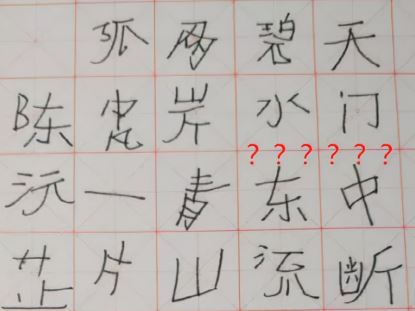 天门中断
碧水东流
两岸青山
孤一片
陈沅芷
??????